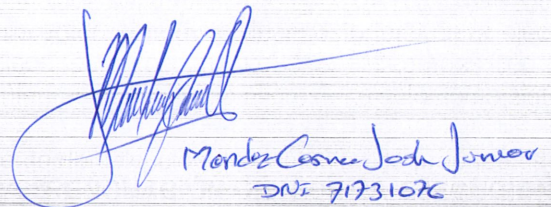 Mendez Cosme Josh Junior
DNI 71731076